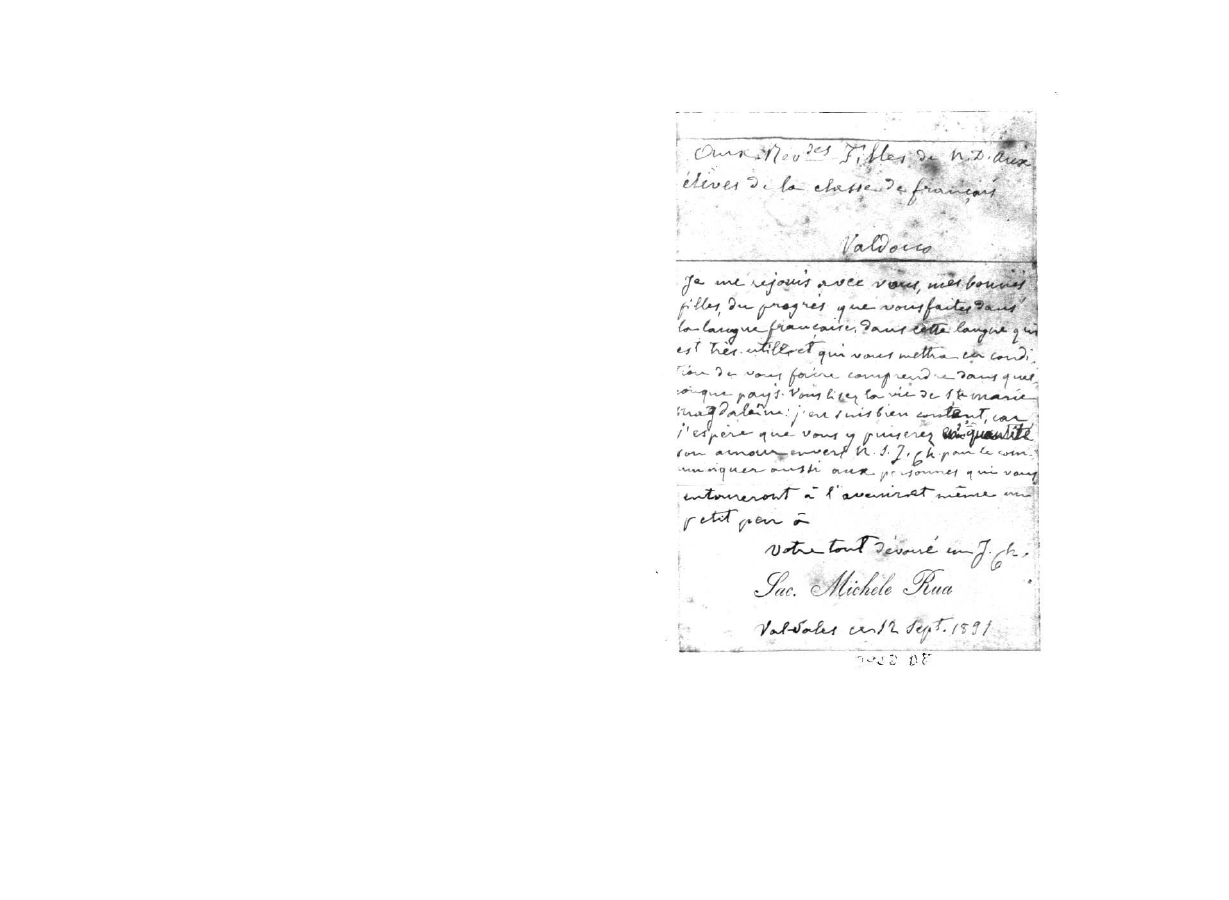 Aux Rev.des Filles de N. D. Aux
élèves de la classe de français
Valdocco
Je me réjouis avec vous, mes bonnes
filles, du progrès que vous faites dans
la langue française, dans cette langue qui
est très utile et qui vous mettra en condi-
tion de vous faire comprendre dans quel-
conque pays. Vous lisez la vie de Ste Marie
Magdaleine: j'en suis bien content, car
j'espère que vous y puiserez en quantité
son amour envers N. S. J. Ch. pour le com-
muniquer aussi aux personnes qui vous
entoureront à l'avenir et même un
petit peu à
Votre tout dévoué en J. Ch.
Sac. Michele Rua
Valsalice 12 Sept. 1891